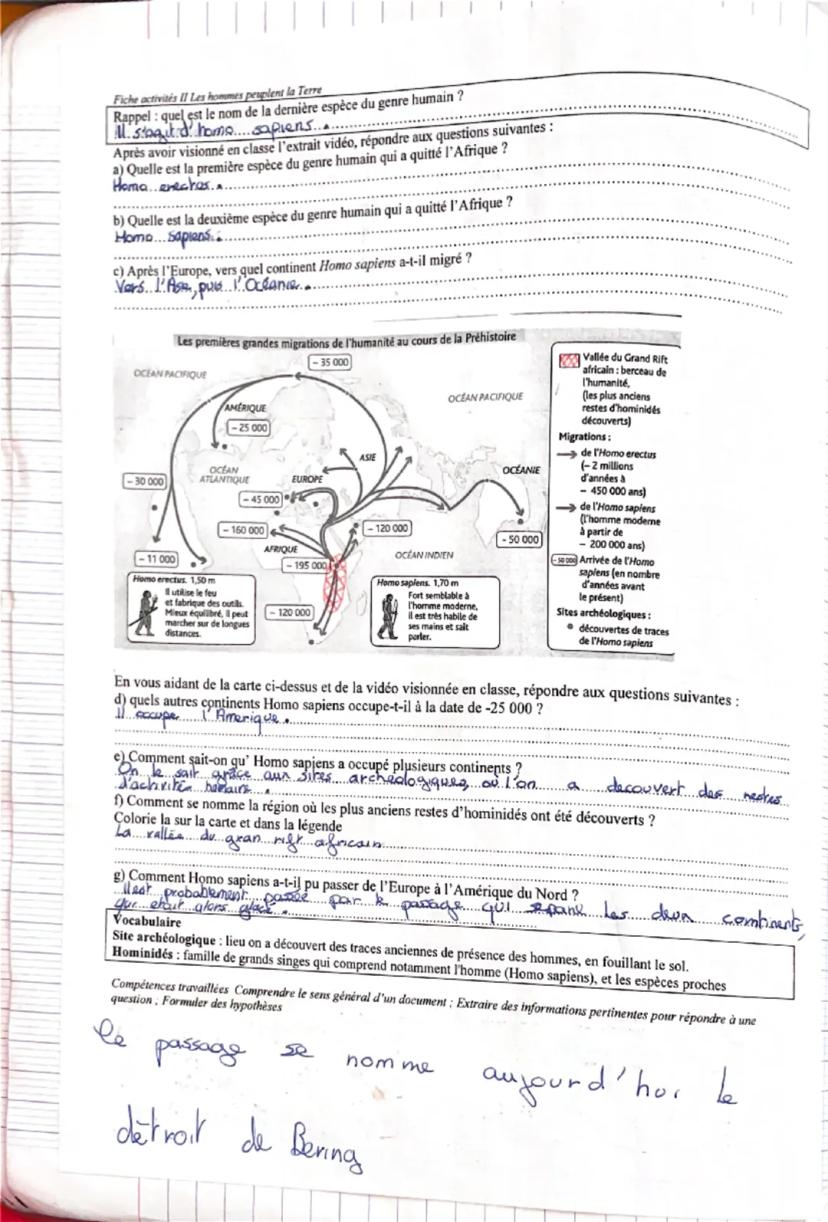 Fiche activités II Les hommes peuplent la Terre
Rappel : quel est le nom de la dernière espèce du genre humain ?
Il s'agit d'homo sapiens.
Après avoir visionné en classe l'extrait vidéo, répondre aux questions suivantes :
a) Quelle est la première espèce du genre humain qui a quitté l'Afrique ?
Homo erectus.
b) Quelle est la deuxième espèce du genre humain qui a quitté l'Afrique ?
Homo sapiens.
c) Après l'Europe, vers quel continent Homo sapiens a-t-il migré ?
Vers l'Asie, puis l'Océanie.
Les premières grandes migrations de l'humanité au cours de la Préhistoire
OCÉAN PACIFIQUE
– 35 000
OCÉAN PACIFIQUE
AMÉRIQUE
– 25 000
ASIE
OCÉAN ATLANTIQUE
EUROPE
OCÉANIE
– 30 000
– 45 000
– 160 000
– 120 000
– 50 000
AFRIQUE
OCÉAN INDIEN
– 11 000
– 195 000
– 120 000
Homo erectus. 1,50 m
Il utilise le feu
et fabrique des outils.
Mieux équilibré, il peut
marcher sur de longues
distances.
Homo sapiens. 1,70 m
Fort semblable à
l'homme moderne,
il est très habile de
ses mains et sait
parler.
Vallée du Grand Rift
africain : berceau de
l'humanité,
(les plus anciens
restes d'hominidés
découverts)
Migrations :
de l'Homo erectus
(– 2 millions
d'années à
– 450 000 ans)
de l'Homo sapiens
(l'homme moderne
à partir de
– 200 000 ans)
- 50 000 Arrivée de l'Homo
sapiens (en nombre
d'années avant
le présent)
Sites archéologiques :
découvertes de traces
de l'Homo sapiens
En vous aidant de la carte ci-dessus et de la vidéo visionnée en classe, répondre aux questions suivantes :
d) quels autres continents Homo sapiens occupe-t-il à la date de -25 000 ?
Il occupe l'Amerique.
e) Comment sait-on qu' Homo sapiens a occupé plusieurs continents ?
On le sait grâce aux sites archéologiques, où l'on a decouvert des restes
d'activités humains.
f) Comment se nomme la région où les plus anciens restes d'hominidés ont été découverts ?
Colorie la sur la carte et dans la légende
La vallée du gran rift africain
g) Comment Homo sapiens a-t-il pu passer de l'Europe à l'Amérique du Nord ?
Il est probablement passé par le passage qui separe les deux continents,
qui etait alors glacé.
Vocabulaire
Site archéologique : lieu on a découvert des traces anciennes de présence des hommes, en fouillant le sol.
Hominidés : famille de grands singes qui comprend notamment l'homme (Homo sapiens), et les espèces proches
Compétences travaillées Comprendre le sens général d'un document ; Extraire des informations pertinentes pour répondre à une
question ; Formuler des hypothèses
le passage se nomme aujourd'hui le
détroit de Bering